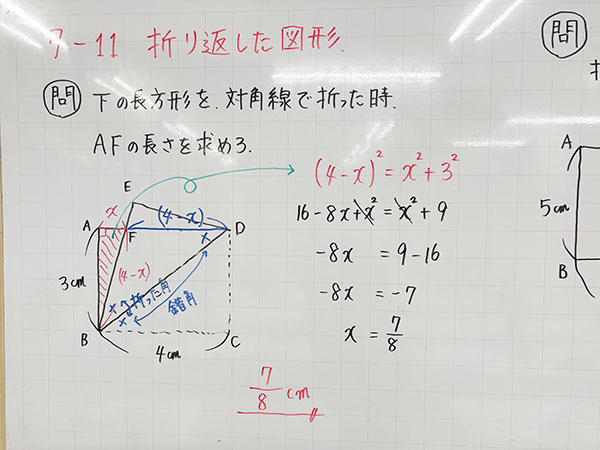 7-11 折り返した図形.
問 下の長方形を.対角線で折った時.
AFの長さを求めろ.
(4-x)²=x²+3²
16-8x+x²=x²+9
-8x=9-16
-8x=-7
x=7/8
E
x
(4-x)
A
F
D
x
3cm
(4-x)
x
折った角
x
錯角
B
4cm
C
7/8 cm
問
A
5cm
B